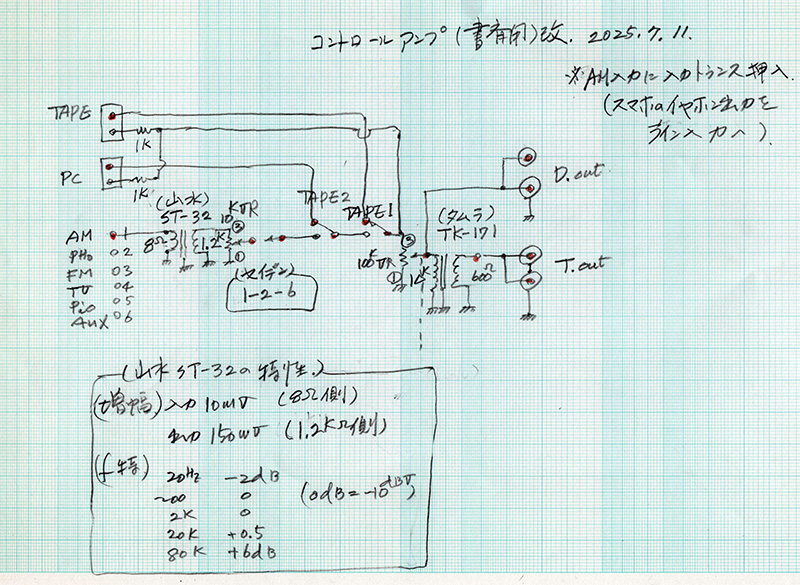 コントロールアンプ(書斎用)改. 2025.7.11.
※AM入力に入力トランス挿入.
(スマホのイヤホン出力を
ライン入力へ).
TAPE
1K
PC
1K
(山水)
ST-32
8Ω
1.2K
10K VR
②
①
TAPE2
TAPE1
AM 1
PHO 2
FM 3
TV 4
5
AUX 6
(セイデン)
1-2-6
②
100K VR
①
(タムラ)
TK-171
10K
600Ω
D.out
T.out
(山水 ST-32の特性.)
(増幅) 入力 10mV (8Ω側)
出力 150mV (1.2KΩ側)
(f特)
20Hz -2dB
200 0 (0dB=-10dBV)
2K 0
20K +0.5
80K +6dB